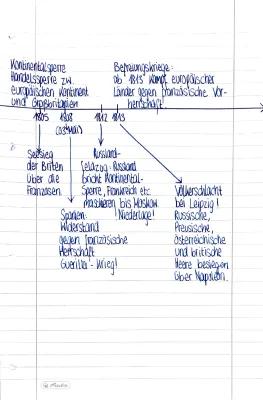 Kontinentalsperre
Handelssperre zw.
europäischen Kontinent
und Großbritanien
Befreiungskriege:
ab 1813 Kampf europäischer
Länder gegen französische Vor-
herrschaft!
1805
1808
(03 Mai)
1812
1813
Seesieg
der Briten
über die
Franzosen
Spanien:
Widerstand
gegen französische
Herrschaft
Guerilla-Krieg!
Russland-
feldzug: Russland
bricht Kontinental-
Sperre, Frankreich etc
maschieren bis Moskau
Niederlage!
Völkerschlacht
bei Leipzig!
Russische,
Preusische,
österreichische
und britische
Heere besiegen
über Napoleon.